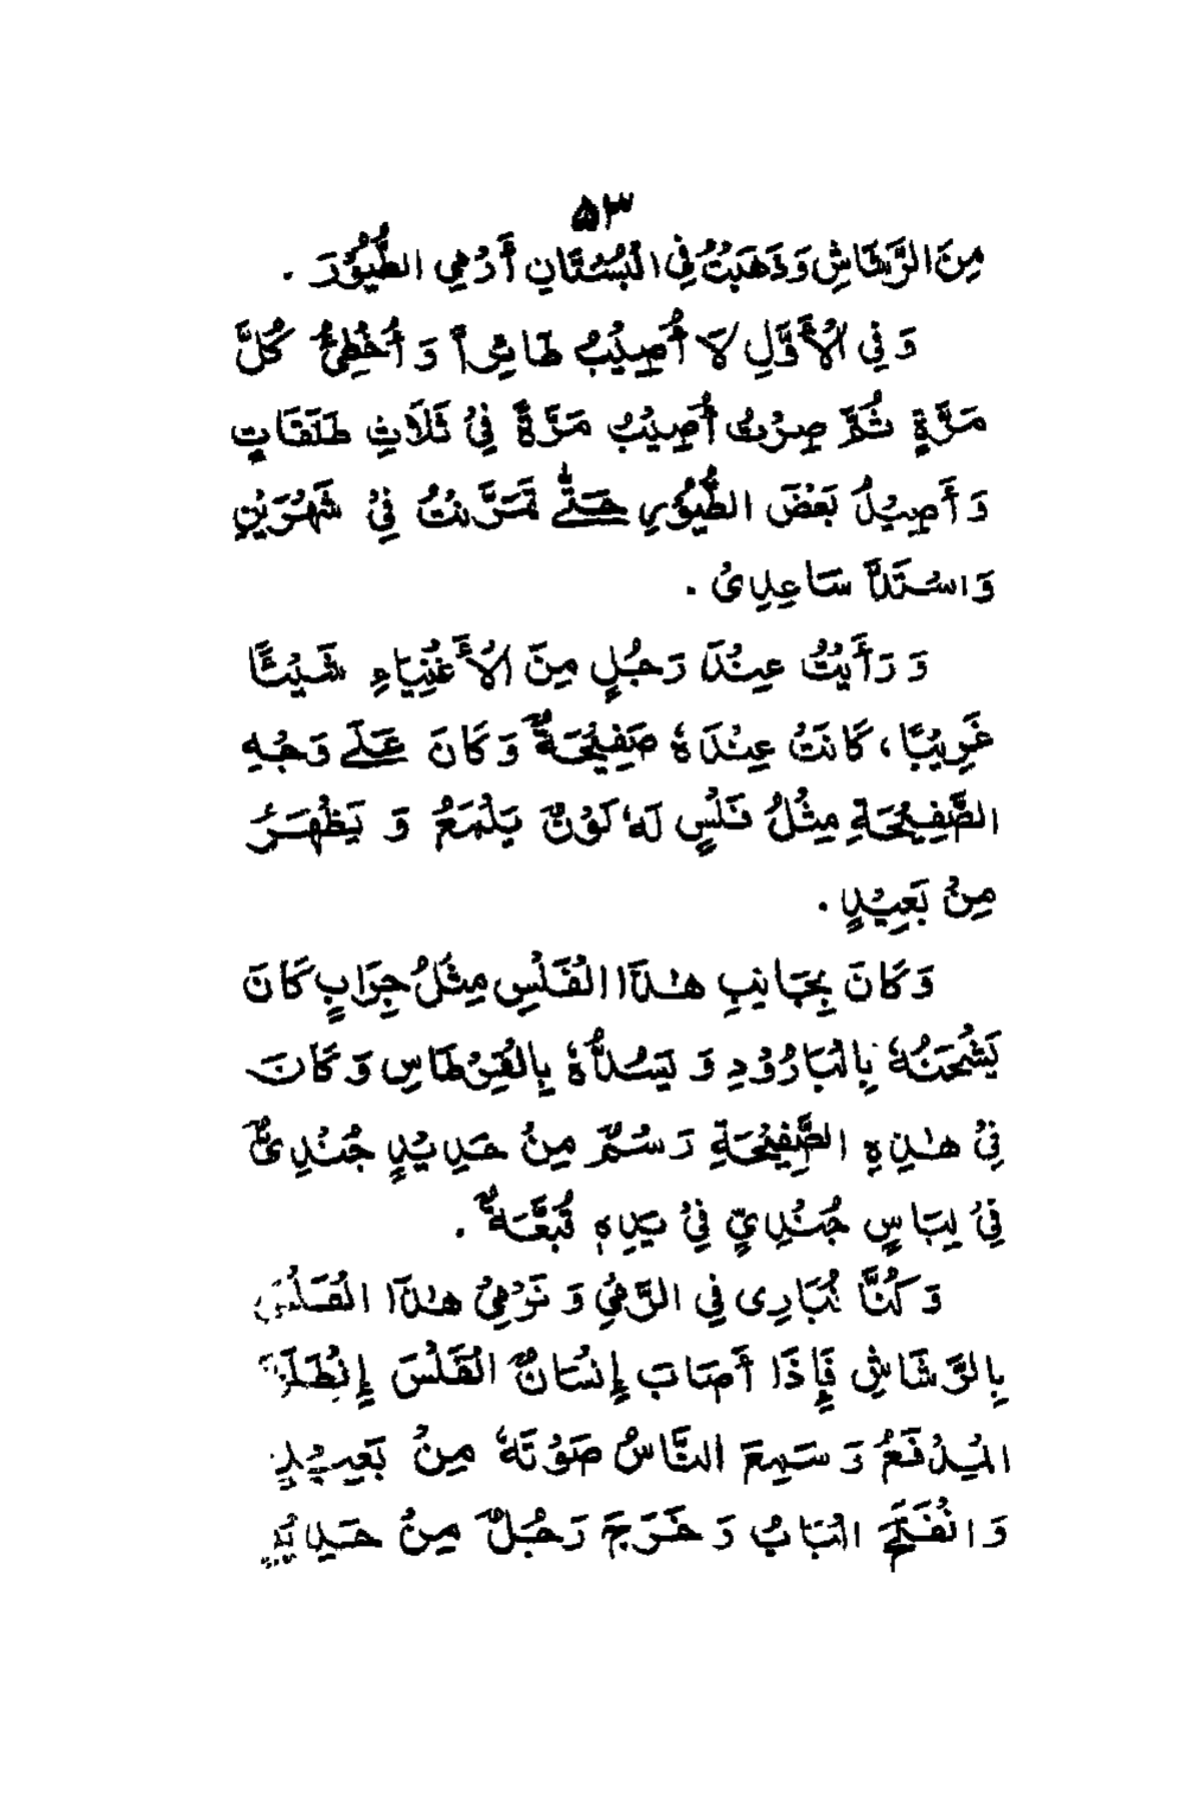 ۵۳
مِنَ الرَّشَّاشِ وَذَهَبْتُ فِی الْبُسْتَانِ أَرْمِي الطُّيُوْرَ .
وَ فِي الْأَوَّلِ لَا أُصِيْبُ طَائِراً وَ أُخْطِئُ كُلَّ
مَرَّةٍ ثُمَّ صِرْتُ أُصِيْبُ مَرَّةً فِيْ ثَلَاثِ طَلَقَاتٍ
وَ أَصِيْدُ بَعْضَ الطُّيُوْرِ حَتّٰى تَمَرَّنْتُ فِيْ شَهْرَيْنِ
وَ اسْتَدَّ سَاعِدِىْ .
وَ رَأَيْتُ عِنْدَ رَجُلٍ مِنَ الْأَغْنِيَاءِ شَيْئًا
غَرِيْبًا، كَانَتْ عِنْدَهٗ صَفِيْحَةٌ وَ كَانَ عَلَى وَجْهِ
الصَّفِيْحَةِ مِثْلُ فَلْسٍ لَهٗ لَوْنٌ يَلْمَعُ وَ يَظْهَرُ
مِنْ بَعِيْدٍ .
وَ كَانَ بِجَانِبِ هٰذَا الْفَلْسِ مِثْلُ جِرَابٍ كَانَ
يَشْحَنُهٗ بِالْبَارُوْدِ وَ يَسُدُّهٗ بِالْقِرْطَاسِ وَ كَانَ
فِيْ هٰذِهِ الصَّفِيْحَةِ رَسْمٌ مِنْ حَدِيْدٍ جُنْدِىٌّ
فِيْ لِبَاسٍ جُنْدِيٍّ فِيْ يَدِهٖ قُبَّعَةٌ .
وَ كُنَّا نُبَارِى فِي الرَّمْيِ وَ نَرْمِيْ هٰذَا الْفَلْسَ
بِالرَّشَّاشِ فَإِذَا أَصَابَ إِنْسَانٌ الْفَلْسَ إِنْطَلَقَ
الْمِدْفَعُ وَ سَمِعَ النَّاسُ صَوْتَهٗ مِنْ بَعِيْدٍ
وَ انْفَتَحَ الْبَابُ وَ خَرَجَ رَجُلٌ مِنْ حَدِيْدٍ